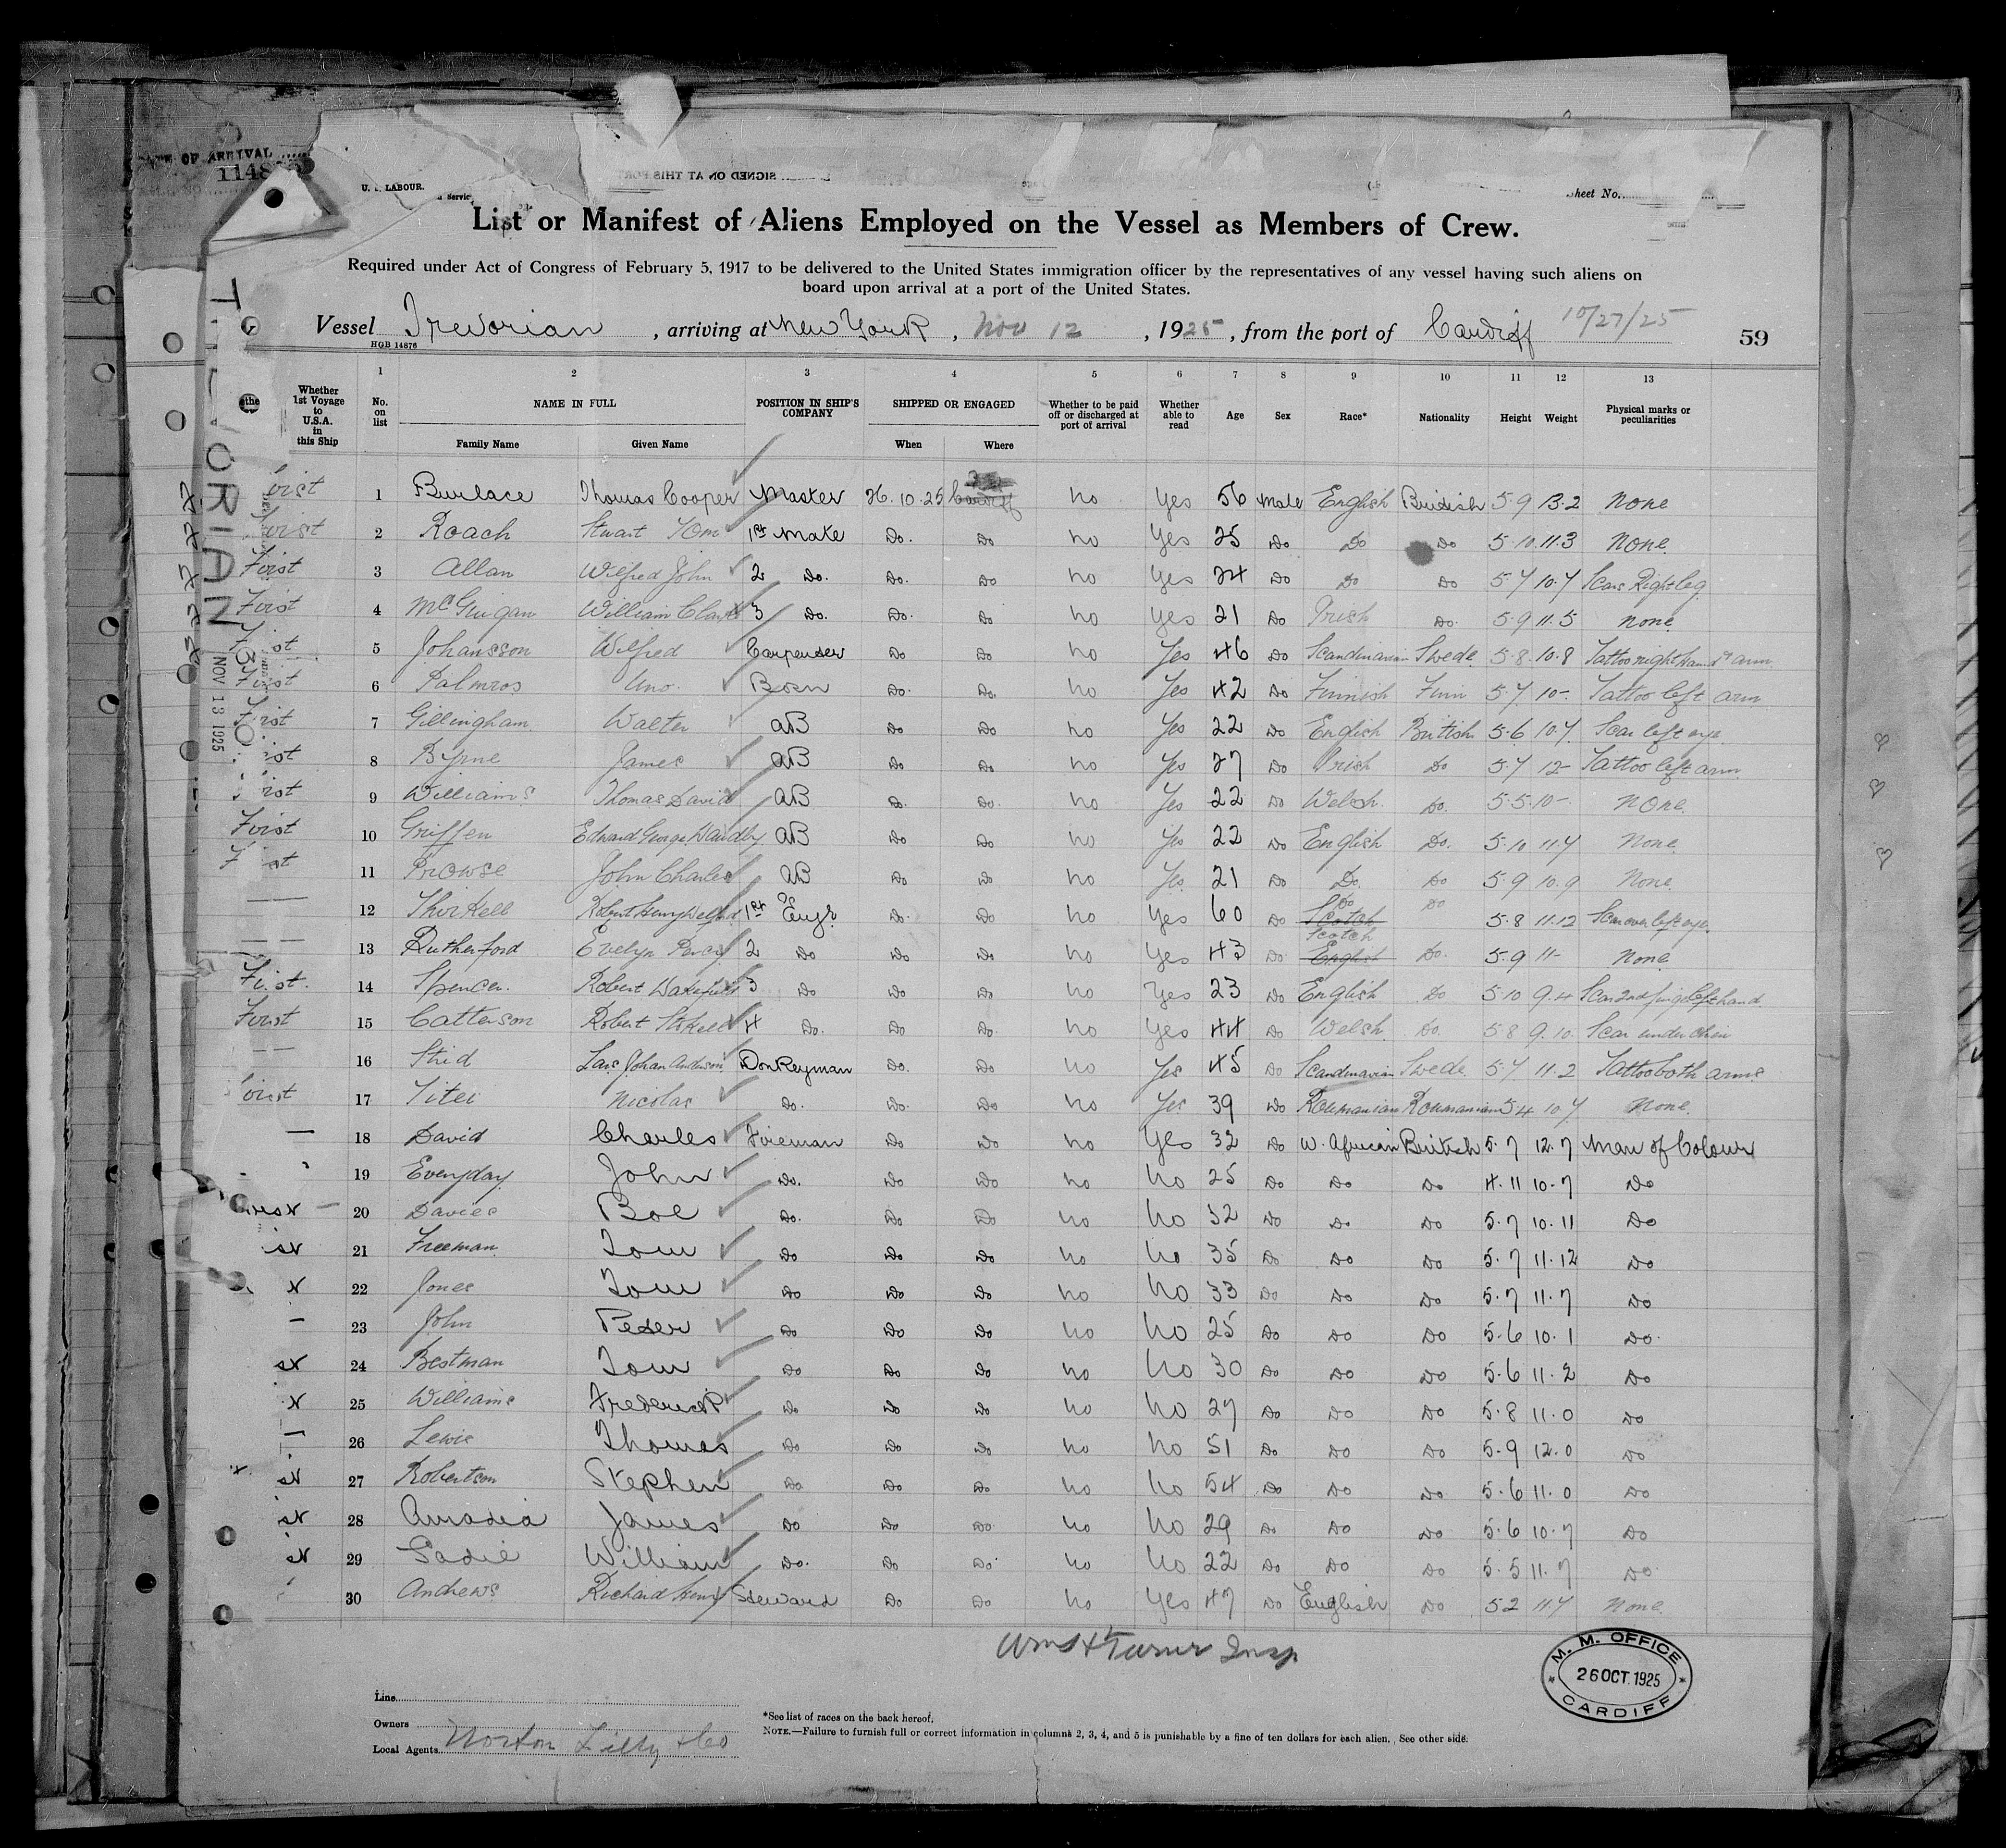 OF ARRIVAL
1148
U. S. LABOUR.
SIGNED ON AT THIS PORT
Sheet No.
List or Manifest of Aliens Employed on the Vessel as Members of Crew.
Required under Act of Congress of February 5, 1917 to be delivered to the United States immigration officer by the representatives of any vessel having such aliens on
board upon arrival at a port of the United States.
Vessel Trevorian, arriving at New York, Nov 12, 1925, from the port of Cardiff 10/27/25
HGB 14876
59
TREVORIAN
NOV 13 1925
1 2 3 4 5 6 7 8 9 10 11 12 13
Whether 1st Voyage to U.S.A. in this Ship No. on list NAME IN FULL POSITION IN SHIP'S COMPANY SHIPPED OR ENGAGED Whether to be paid off or discharged at port of arrival Whether able to read Age Sex Race* Nationality Height Weight Physical marks or peculiarities
Family Name Given Name When Where
First 1 Burlace Thomas Cooper Master 26.10.25 Cardiff no Yes 56 Male English British 5-9 13.2 None
First 2 Roach Stuart Tom 1st Mate Do. Do no Yes 25 Do Do Do 5.10 11.3 None
First 3 Allan Wilfred John 2 Do. Do. Do no Yes 24 Do Do Do 5.7 10.7 Scars Right leg
First 4 McGuigan William Clark 3 Do. Do. Do no Yes 21 Do Irish Do. 5.9 11.5 none
First 5 Johansson Wilfred Carpenter Do Do no Yes 46 Do Scandinavian Swede 5.8 10.8 Tattoo right hand & arm
First 6 Palmros Uno. Bosn Do. Do. no Yes 42 Do Finnish Finn 5.7 10- Tattoo left arm
First 7 Gillingham Walter AB Do Do no Yes 22 Do English British 5.6 10.7 Scar left eye
First 8 Byrne James AB Do Do no Yes 27 Do Irish Do 5.7 12- Tattoo left arm
First 9 Williams Thomas David AB Do. Do. no Yes 22 Do Welsh Do. 5.5 10- None
First 10 Griffen Edward George AB Do Do no Yes 22 Do English Do. 5.10 11.7 None
First 11 Prowse John Charles AB Do Do no Yes 21 Do Do. Do 5.9 10.9 None
— 12 Thirkell Robert Henry 1st Engr Do. Do no Yes 60 Do Scotch Do Do 5.8 11.12 Scar over left eye
— 13 Rutherford Evelyn Percy 2 Do Do Do no Yes 43 Do English Scotch Do. 5.9 11- None
First. 14 Spencer. Robert Wakefield 3 Do Do Do no Yes 23 Do English Do 5.10 9.4 Scar 2nd finger left hand
First 15 Catterson Robert Stokell 4 Do. Do Do. no Yes 44 Do Welsh Do. 5.8 9.10 Scar under chin
— 16 Strid Lars Johan Anderson Donkeyman Do. Do no Yes 45 Do Scandinavian Swede 5.7 11.2 Tattoo both arms
First 17 Titei Nicolas Do. Do. Do no Yes 39 Do Roumanian Roumanian 5.4 10.7 None
— 18 David Charles Fireman Do Do no Yes 32 Do W. African British 5.7 12.7 Man of Colour
19 Everyday John Do. Do Do no No 25 Do Do Do 4.11 10-7 Do
20 Davies Boe Do. Do Do no No 32 Do Do Do 5.7 10.11 Do
21 Freeman Tom Do Do Do no No 35 Do Do Do 5.7 11.12 Do
22 Jones Tom Do Do Do no No 33 Do Do Do 5.7 11.7 Do
— 23 John Peter Do Do Do no No 25 Do Do Do 5.6 10.1 Do.
24 Bestman Tom Do Do Do no No 30 Do Do Do 5.6 11.2 Do
25 Williams Frederick Do Do Do no No 27 Do Do Do 5.8 11.0 Do
— 26 Lewis Thomas Do Do Do no No 51 Do Do Do 5.9 12.0 Do
27 Robertson Stephen Do Do Do. no No 54 Do Do Do 5.6 11.0 Do
28 Amadia James Do Do Do no No 29 Do Do Do 5.6 10.7 Do
29 Sadie William Do. Do Do. no No 22 Do Do Do 5.5 11.7 Do
30 Andrews Richard Henry Steward Do Do no Yes 47 Do English Do 5.2 11.7 None.
Wm H Turner Insp
M. M. OFFICE
26 OCT. 1925
CARDIFF
Line
Owners
Local Agents Norton Lilly & Co
*See list of races on the back hereof.
NOTE.—Failure to furnish full or correct information in columns 2, 3, 4, and 5 is punishable by a fine of ten dollars for each alien. See other side.